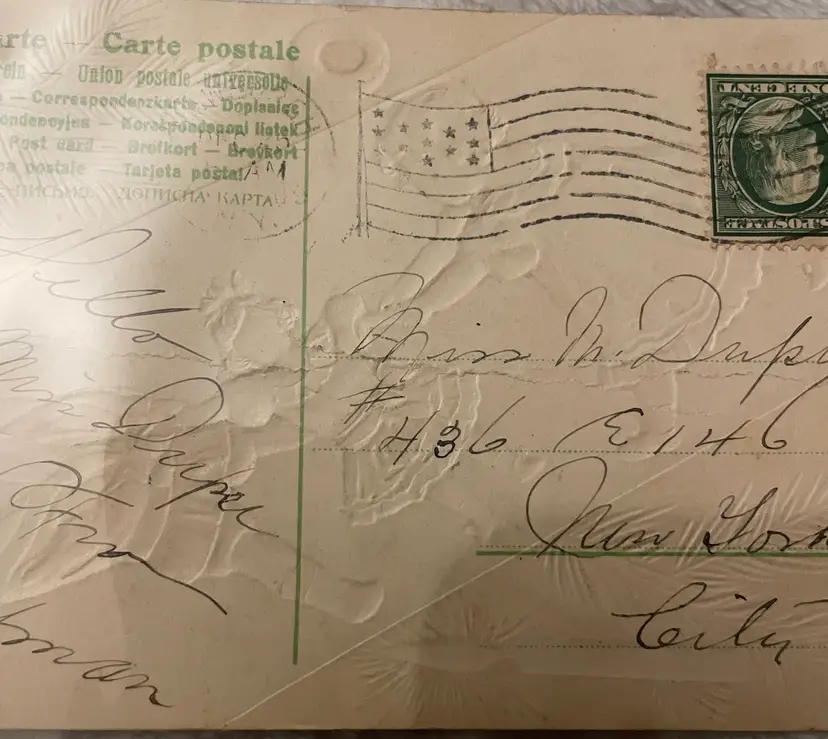 arte — Carte postale
rein — Union postale universelle
— Correspondenzkarte — Dopisnice
ondencyjna — Korespondenční lístek
Post card — Brefkort — Brevkort
pa postale — Tarjeta postal
ПИСЬМО ДОПИСНА КАРТА
AM
Hello
Miss Duper
From
man
Miss M. Dup
# 436 E 146
New York
City